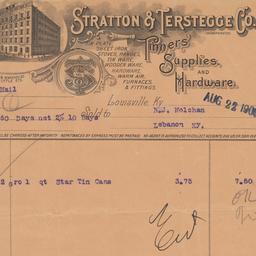 STRATTON & TERSTEGGE CO.
INCORPORATED
TIN PLATE
SHEET IRON
STOVES, RANGES,
TIN WARE,
WOODEN WARE,
HARDWARE,
WARM AIR,
FURNACES
& FITTINGS
Tinners'
Supplies,
AND
Hardware.
Mail
Louisville, Ky.
AUG 22 190
60 Days net 2% 10 Days
Sold to
N.J. Holohan
Lebanon Ky.
BE CHARGED AFTER MATURITY. REMITTANCES BY EXPRESS MUST BE PREPAID. NO AGENT IS AUTHORIZED TO COLLECT ACCOUNTS DUE US OR
2 gro 1 qt Star Tin Cans 3.75 7.50
OK